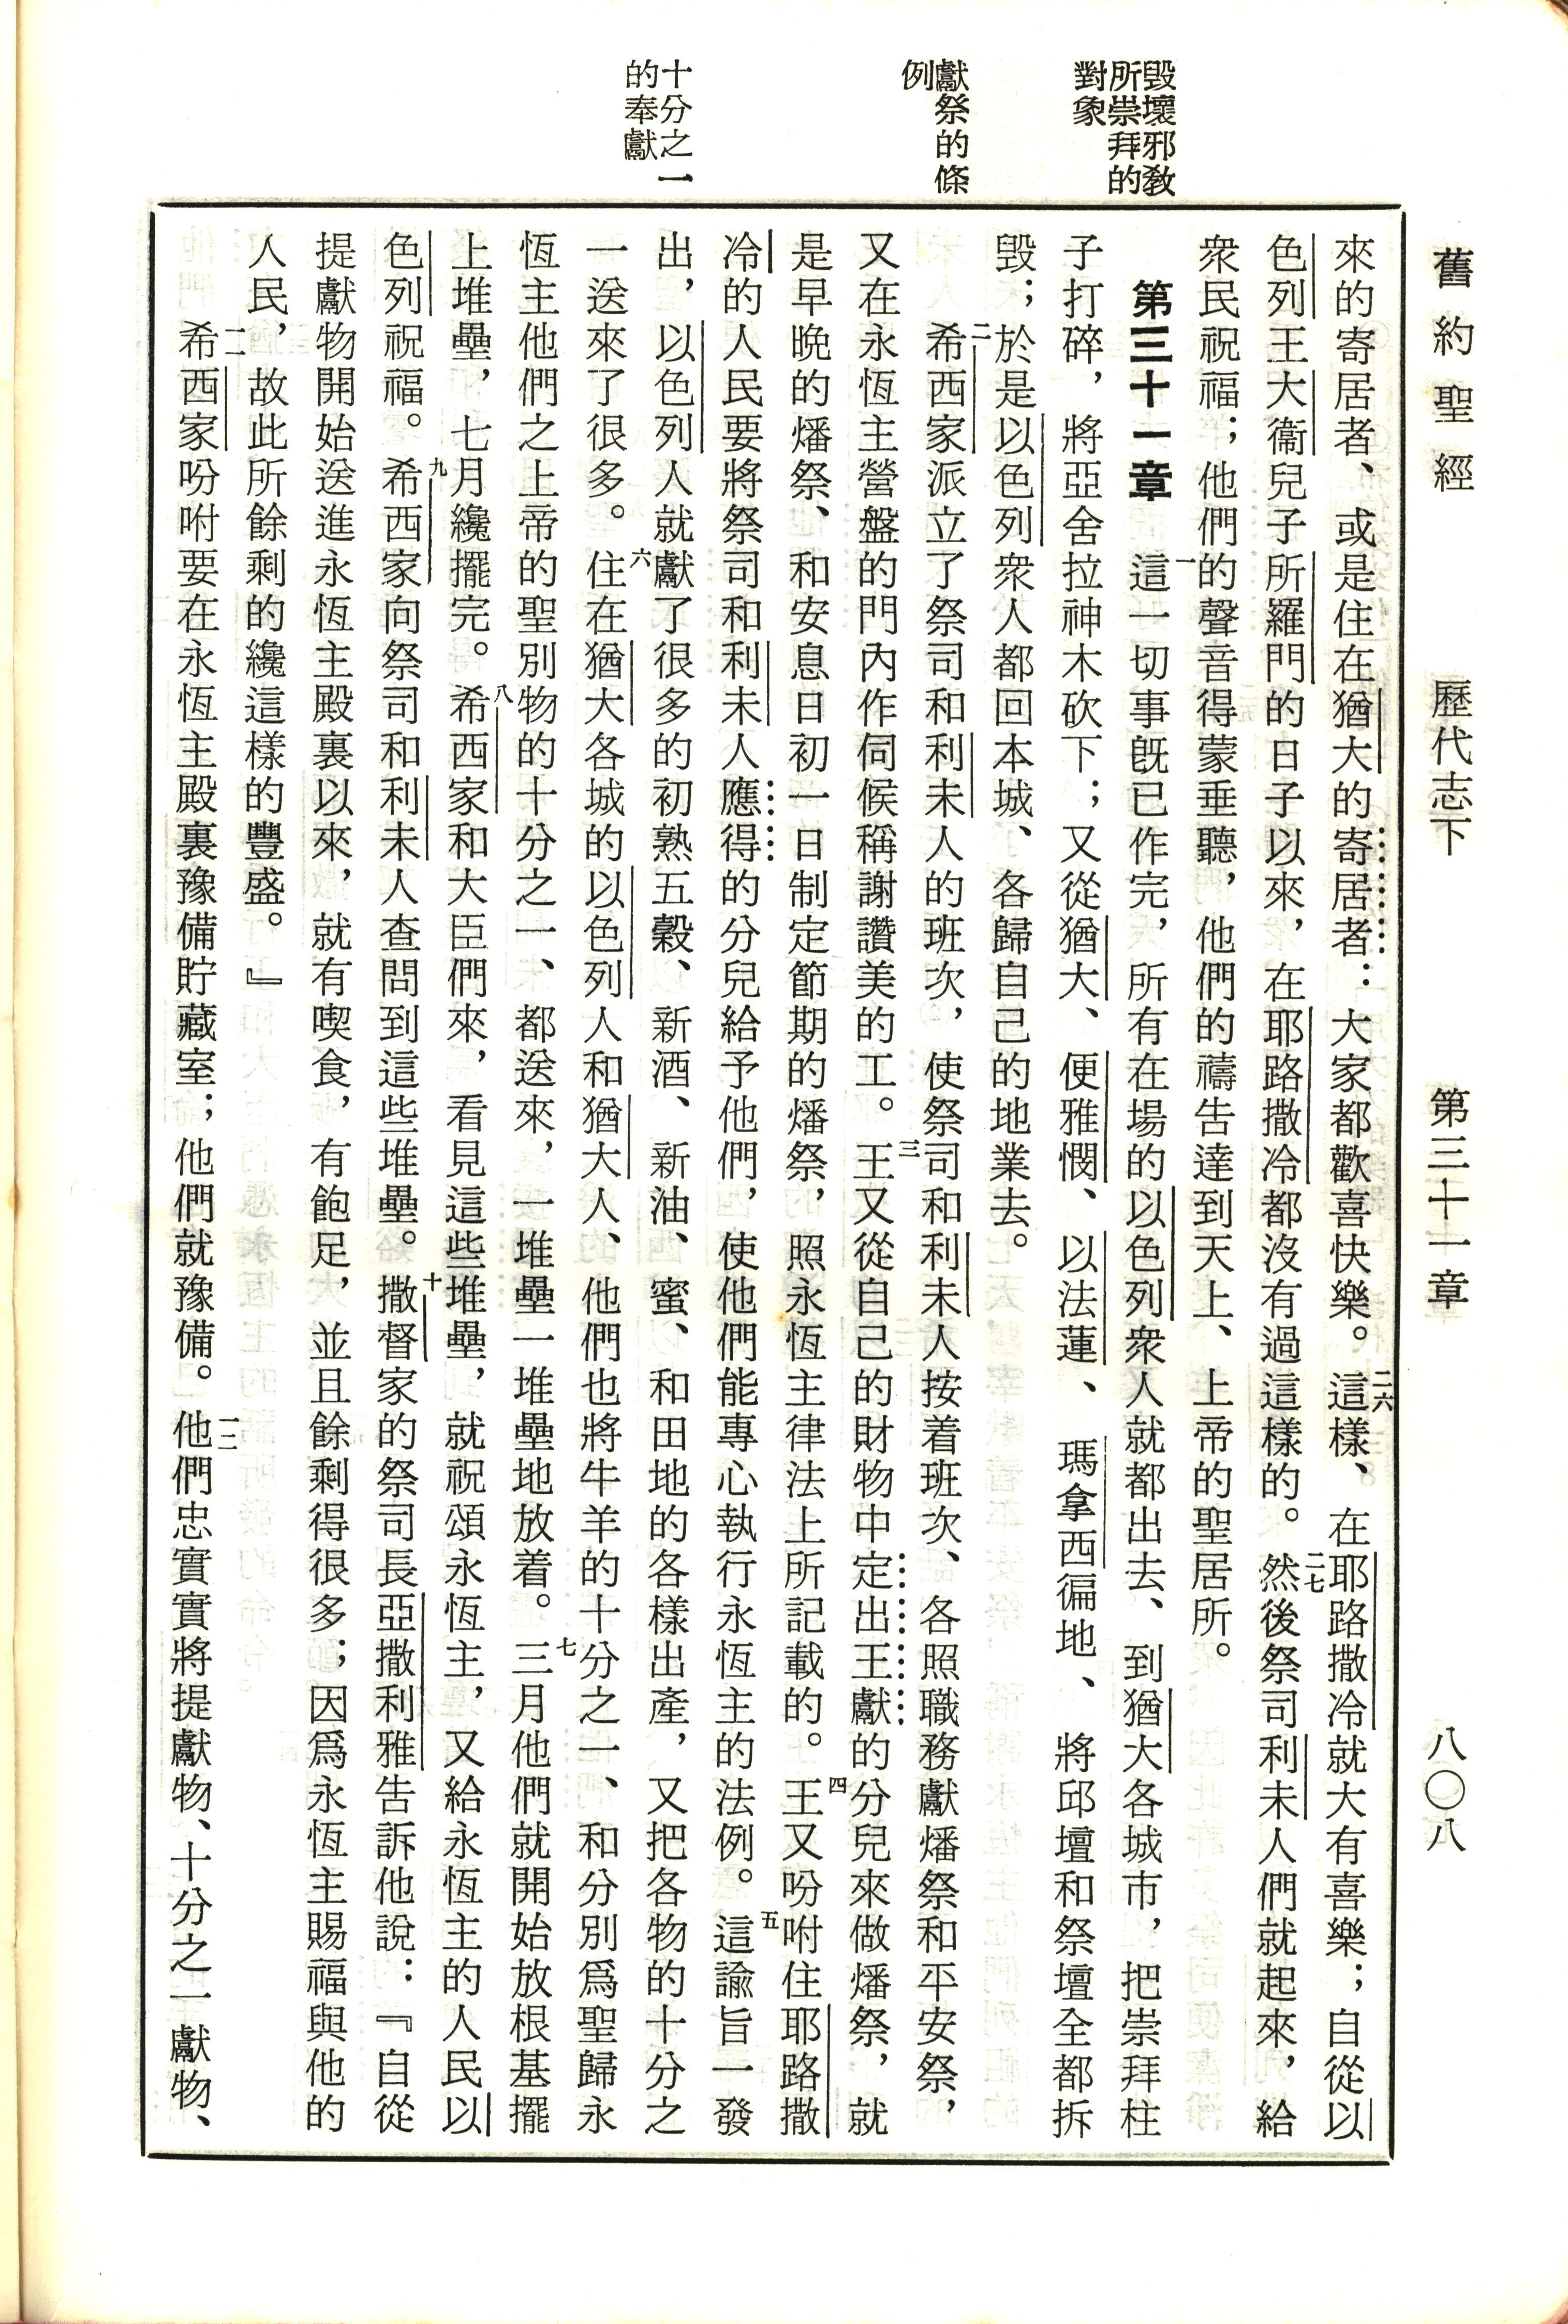 舊約聖經 歷代志下 第三十一章 八〇八
毀壞邪教
所崇拜的
對象
獻祭的條
例
十分之一
的奉獻
來的寄居者、或是住在猶大的寄居者：大家都歡喜快樂。二六這樣、在耶路撒冷就大有喜樂；自從以
色列王大衞兒子所羅門的日子以來，在耶路撒冷都沒有過這樣的。二七然後祭司利未人們就起來，給
衆民祝福；他們的聲音得蒙垂聽，他們的禱告達到天上、上帝的聖居所。
第三十一章 一這一切事旣已作完，所有在場的以色列衆人就都出去、到猶大各城市，把崇拜柱
子打碎，將亞舍拉神木砍下；又從猶大、便雅憫、以法蓮、瑪拿西徧地、將邱壇和祭壇全都拆
毀；於是以色列衆人都回本城、各歸自己的地業去。
二希西家派立了祭司和利未人的班次，使祭司和利未人按着班次、各照職務獻燔祭和平安祭，
又在永恆主營盤的門內作伺候稱謝讚美的工。三王又從自己的財物中定出王獻的分兒來做燔祭，就
是早晚的燔祭、和安息日初一日制定節期的燔祭，照永恆主律法上所記載的。四王又吩咐住耶路撒
冷的人民要將祭司和利未人應得的分兒給予他們，使他們能專心執行永恆主的法例。五這諭旨一發
出，以色列人就獻了很多的初熟五穀、新酒、新油、蜜、和田地的各樣出產，又把各物的十分之
一送來了很多。六住在猶大各城的以色列人和猶大人、他們也將牛羊的十分之一、和分別爲聖歸永
恆主他們之上帝的聖別物的十分之一、都送來，一堆壘一堆壘地放着。七三月他們就開始放根基擺
上堆壘，七月纔擺完。八希西家和大臣們來，看見這些堆壘，就祝頌永恆主，又給永恆主的人民以
色列祝福。九希西家向祭司和利未人查問到這些堆壘。十撒督家的祭司長亞撒利雅告訴他說：『自從
提獻物開始送進永恆主殿裏以來，就有喫食，有飽足，並且餘剩得很多；因爲永恆主賜福與他的
人民，故此所餘剩的纔這樣的豐盛。』
一一希西家吩咐要在永恆主殿裏豫備貯藏室；他們就豫備。一二他們忠實實將提獻物、十分之一獻物、